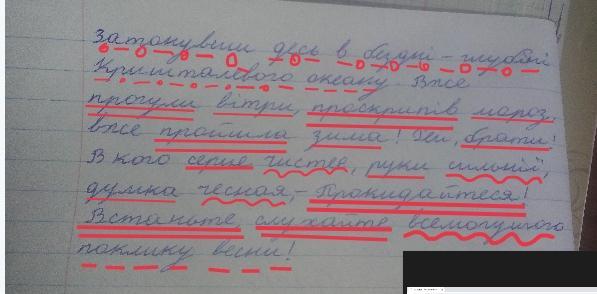 Затонувши десь в бездні - глубині
Кришталевого океану Вже
прогули вітри, проскрипів мороз,
вже пройшла зима! Гей, брати!
В кого серце чистее, руки сильнії,
думка чесная, - Прокидайтеся!
Встаньте слухайте всемогущого
поклику весни!